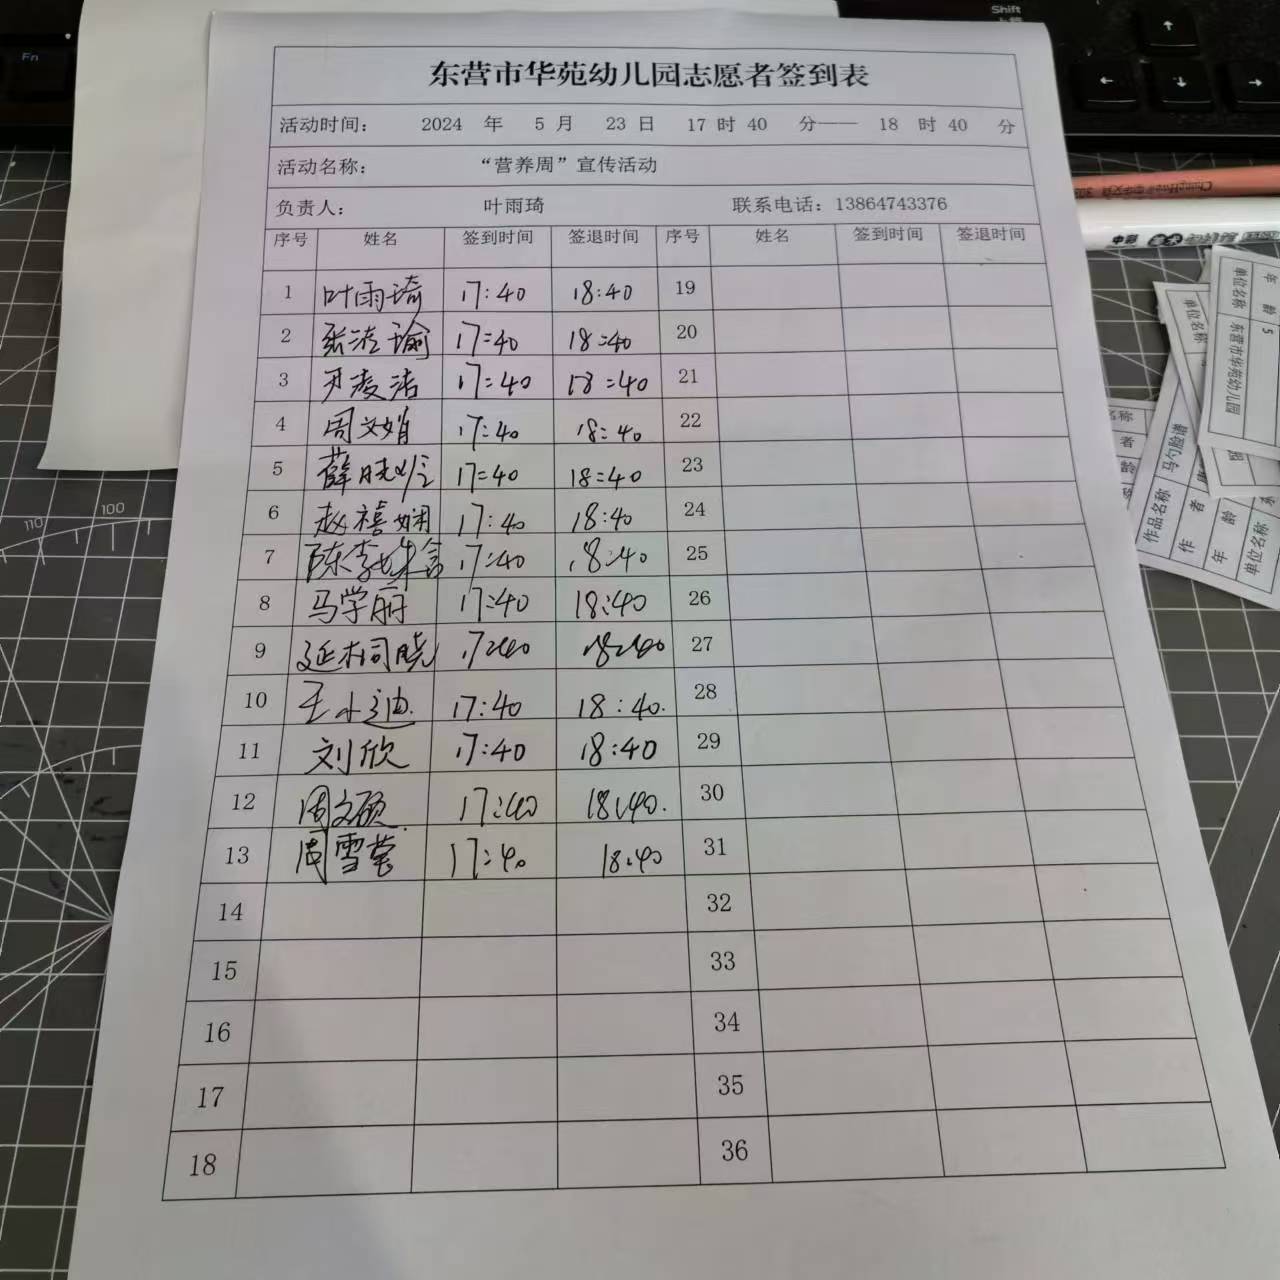 Shift
Fn
东营市华苑幼儿园志愿者签到表
活动时间： 2024 年 5 月 23 日 17 时 40 分—— 18 时 40 分
活动名称： “营养周”宣传活动
负责人： 叶雨琦 联系电话：13864743376
序号 姓名 签到时间 签退时间 序号 姓名 签到时间 签退时间
1 叶雨琦 17:40 18:40 19
2 17:40 18:40 20
3 17:40 18:40 21
4 周文娟 17:40 18:40 22
5 17:40 18:40 23
6 赵禧娴 17:40 18:40 24
7 17:40 18:40 25
8 马学丽 17:40 18:40 26
9 17:40 18:40 27
10 王小迪 17:40 18:40 28
11 刘欣 17:40 18:40 29
12 周文硕 17:40 18:40 30
13 周雪莹 17:40 18:40 31
14 32
15 33
16 34
17 35
18 36
110
100
中彩
年 龄 5
单位名称 东营市华苑幼儿园
单位名称
作品名称 马勺脸谱
作 者
年 龄
单位名称